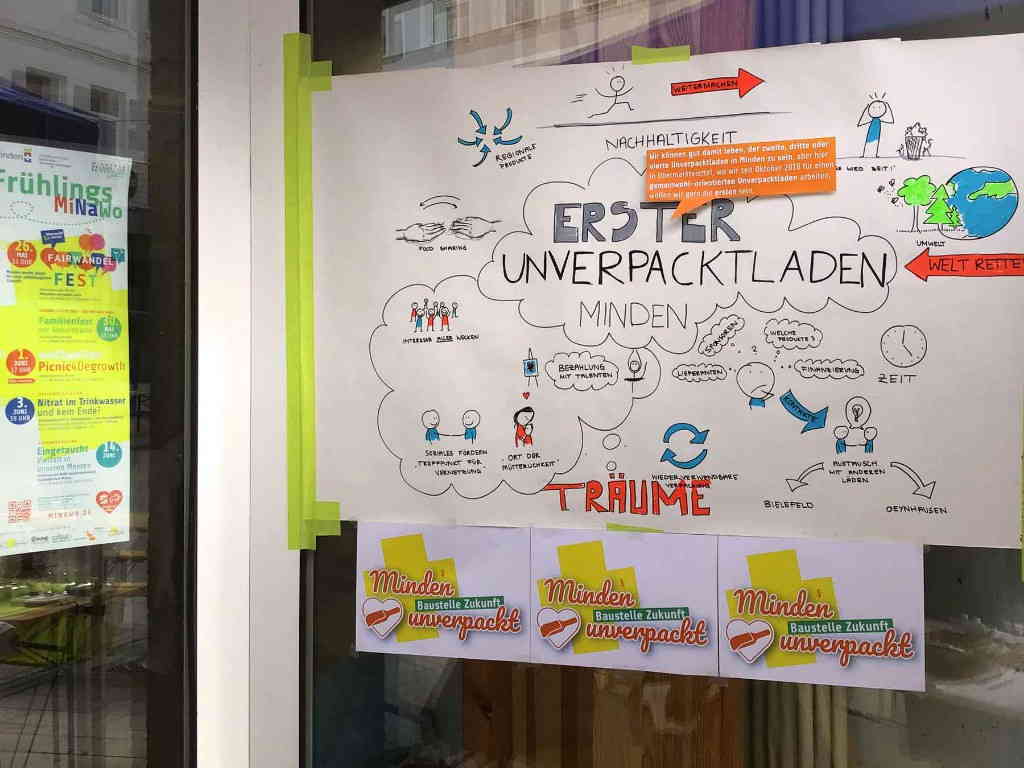 Frühlings
MiNaWo
26.
MAI
FAIRWANDEL
FEST
Familienfest
MAI
1.
JUNI
17 UHR
Picnic4Degrowth
3.
JUNI
19 UHR
Nitrat im Trinkwasser
und kein Ende?
Eingetaucht
Vielfalt in
unseren Meeren
14.
JUNI
MINAWO.DE
WEITERMACHEN
REGIONALE
PRODUKTE
NACHHALTIGKEIT
Wir können gut damit leben, der zweite, dritte oder
vierte Unverpacktladen in Minden zu sein, aber hier
in Obermarktviertel, wo wir seit Oktober 2018 für einen
gemeinwohl-orientierten Unverpacktladen arbeiten,
wollen wir gern die ersten sein.
FOOD SHARING
ERSTER
UNVERPACKTLADEN
MINDEN
UMWELT
WELT RETTE
INTERESSE ALLER WECKEN
BEZAHLUNG
MIT TALENTEN
SPONSOREN
WELCHE
PRODUKTE?
LIEFERANTEN
FINANZIERUNG
ZEIT
KONTAKTE
SOZIALES FÖRDERN
TREFFPUNKT FÜR
VERNETZUNG
ORT DER
MÜTTERLICHKEIT
WIEDERVERWENDBARE
VERPACKUNG
AUSTAUSCH
MIT ANDEREN
LÄDEN
BIELEFELD
OEYNHAUSEN
TRÄUME
Minden
Baustelle Zukunft
unverpackt
Minden
Baustelle Zukunft
unverpackt
Minden
Baustelle Zukunft
unverpackt